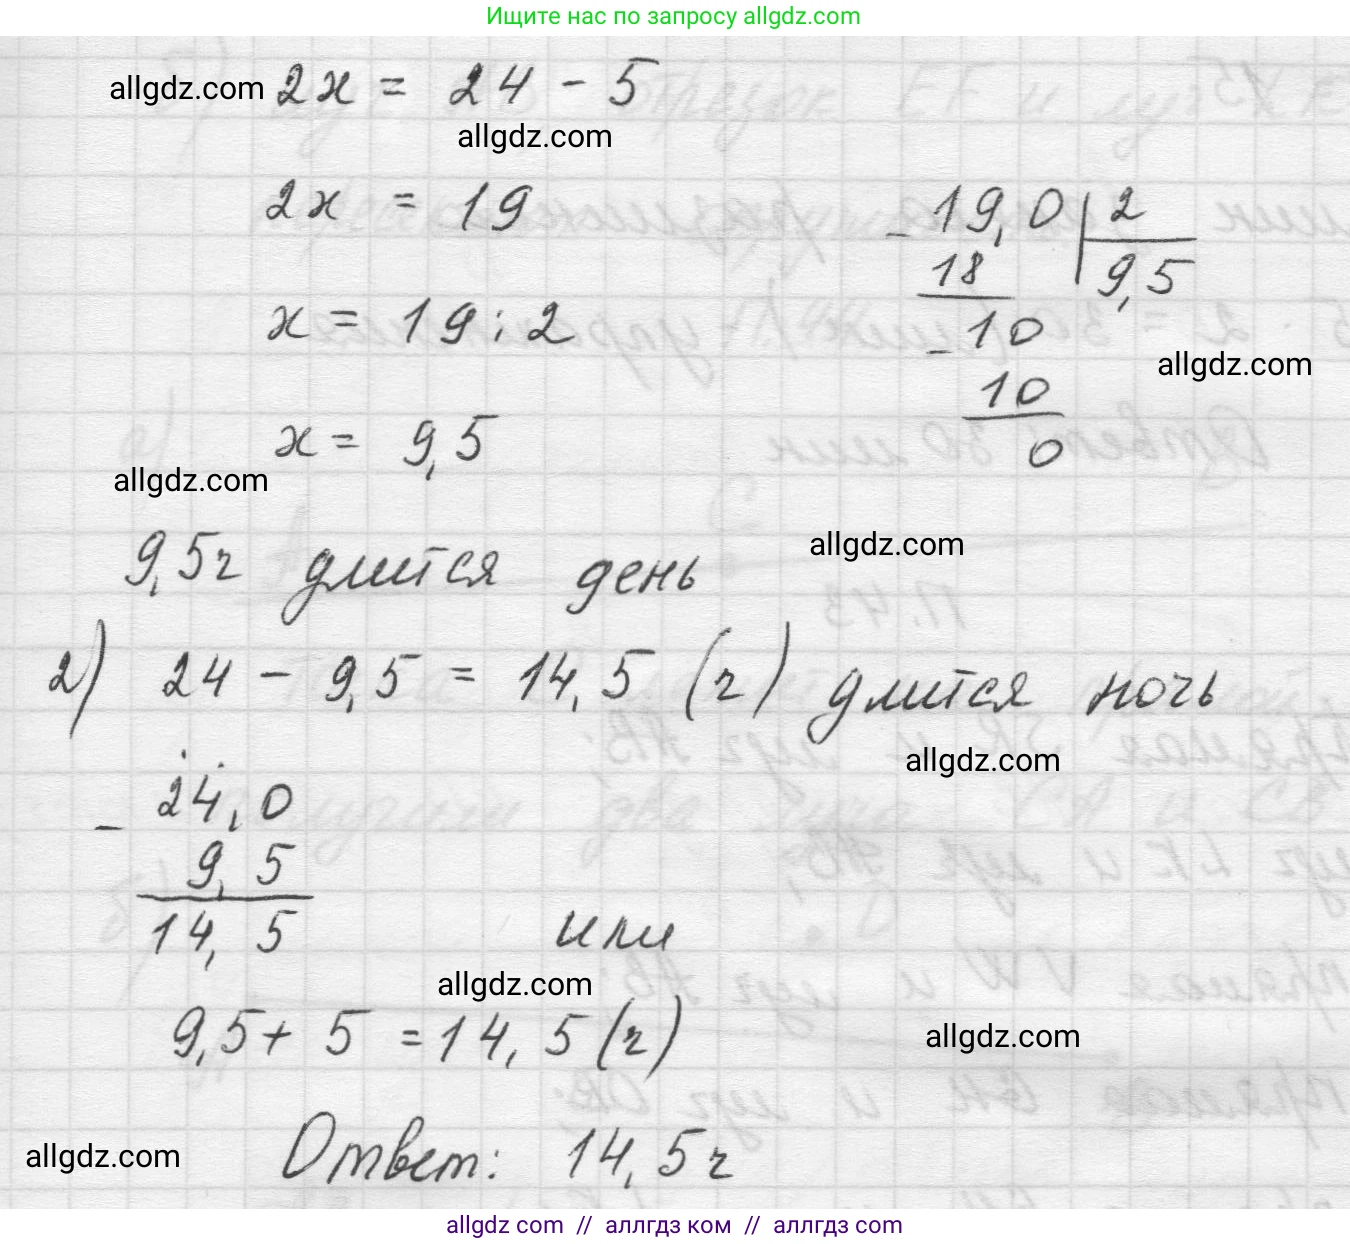 Ищите нас по запросу allgdz.com
allgdz.com 2x = 24 - 5
allgdz.com
2x = 19
- 19,0 | 2
18 9,5
x = 19 : 2
- 10
allgdz.com
10
x = 9,5
0
allgdz.com
allgdz.com
9,5 ч длится день
2) 24 - 9,5 = 14,5 (ч) длится ночь
allgdz.com
- 24,0
9,5
14,5
или
allgdz.com
9,5 + 5 = 14,5 (ч)
allgdz.com
allgdz.com
Ответ: 14,5 ч
allgdz com // аллгдз ком // аллгдз com